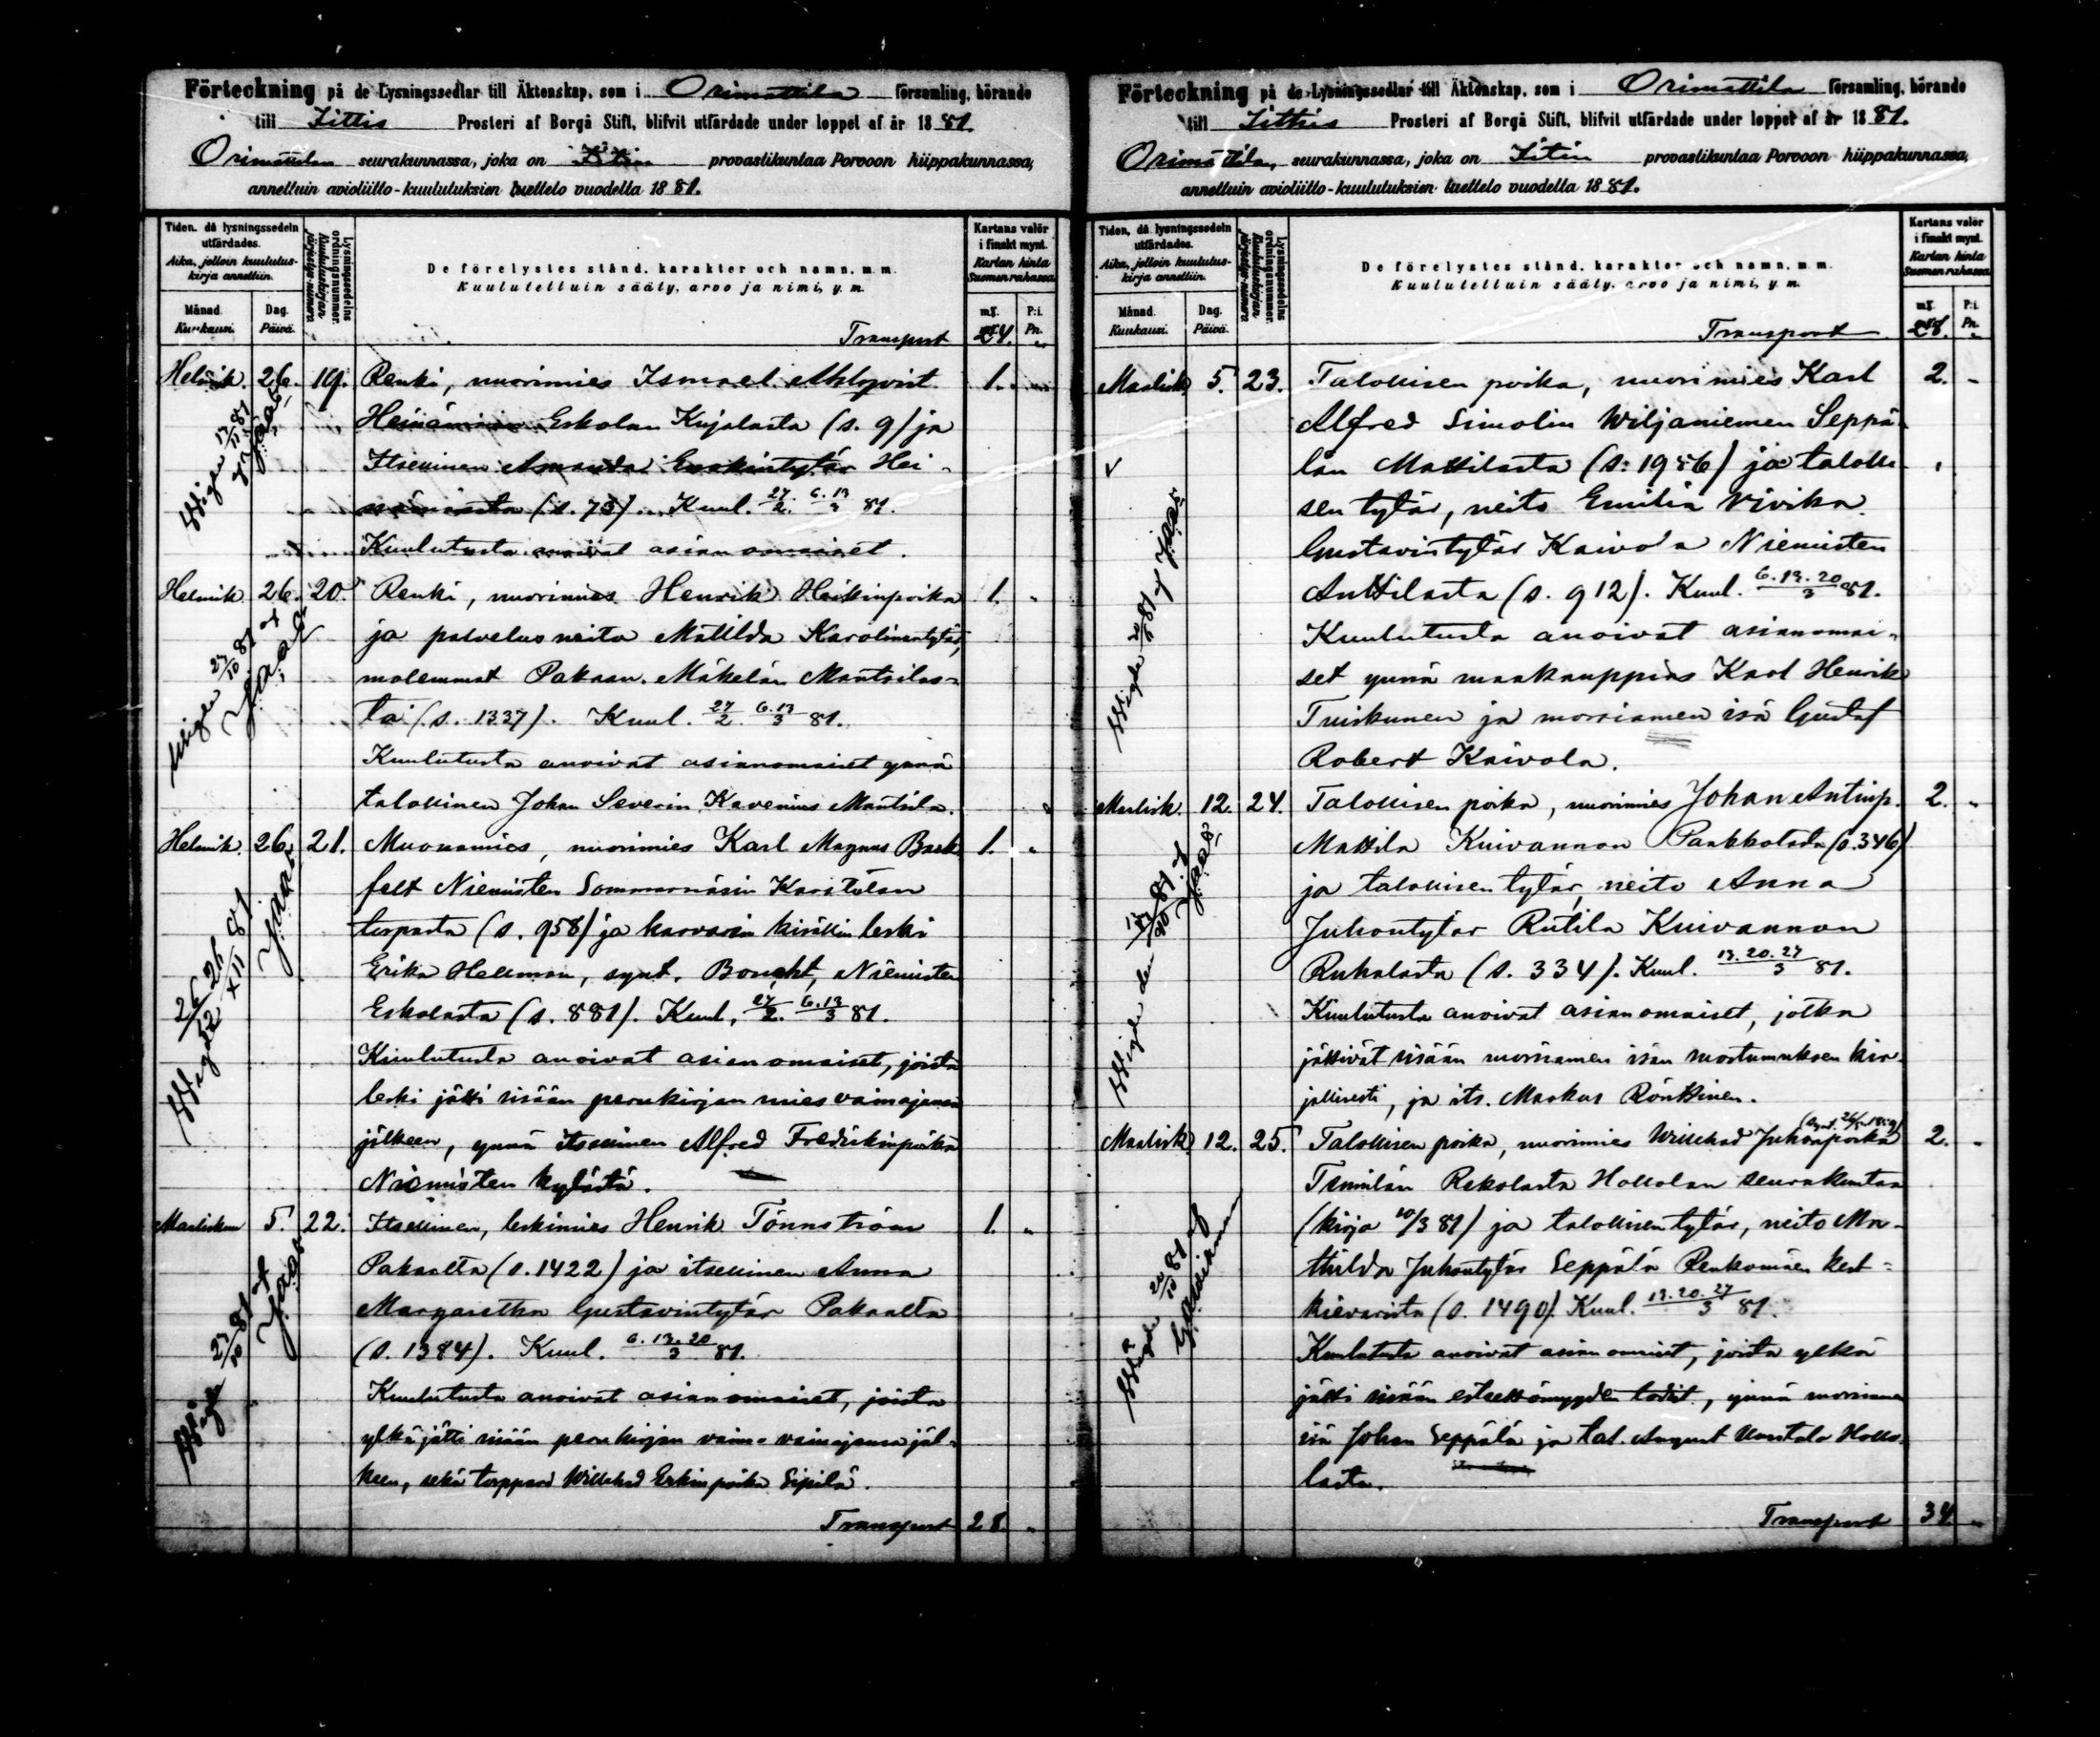 Förteckning på de Lysningssedlar till Äktenskap, som i Orimattila församling, hörande
till Jittis Prosteri af Borgå Stift, blifvit utfärdade under loppet af år 1881.
Orimattilan seurakunnassa, joka on Iitin provastikuntaa Porvoon hiippakunnassa,
annettuin avioliitto-kuulutuksien luettelo vuodella 1881.
Tiden, då lysningssedeln utfärdades.
Aika, jolloin kuulutus-kirja annettiin.
Månad. Kuukausi.
Dag. Päivä.
Lysningssedelns ordningsnummer.
Kuulutuskirjan järjestys-numero
De förelystes stånd, karakter och namn, m. m.
Kuulutelluin sääty, arvo ja nimi, y. m.
Kartans valör i finskt mynt.
Kartan hinta Suomen rahassa
mk. P:i. Pn.
Transport 24. "
Helmik. 26. 19. Renki, nuorimies Ismael Ahlqvist 1. "
Eskolan Kujalasta (s. 9) ja
Itsellinen Amanda Eerikintytär Hei-
(s. 73). Kuul. 27/2. 6.13/3 81.
Kuulutusta anoivat asianomaiset.
Helmik. 26. 20. Renki, nuorimies Henrik Heikinpoika 1. "
ja palvelusneito Matilda Karolinantytär,
molemmat Pakaan Mäkelän Mantsilas-
ta (s. 1337). Kuul. 27/2 6.13/3 81.
Kuulutusta anoivat asianomaiset ynnä
talollinen Johan Severin Kavenius Mantsila.
Helmik. 26. 21. Muonamies, nuorimies Karl Magnus Back- 1. "
felt Niemisten Sommarnäsin Karstolan
torpasta (s. 958) ja karvarin kisällin leski
Erika Hellman, synt. Boucht, Niemisten
Eskolasta (s. 881). Kuul. 27/2. 6.13/3 81.
Kuulutusta anoivat asianomaiset, joista
leski jätti sisään perukirjan miesvainajansa
jälkeen, ynnä itsellinen Alfred Fredrikinpoika
Niemisten kylästä.
Maaliskuu 5. 22. Itsellinen, leskimies Henrik Tönnström 1. "
Pakaalta (s. 1422) ja itsellinen Anna
Margaretha Gustavintytär Pakaalta
(s. 1384). Kuul. 6.13.20/3 81.
Kuulutusta anoivat asianomaiset, joista
ylkä jätti sisään perukirjan vaimo-vainajansa jäl-
keen, sekä torppari Willehad Erkinpoika Sipilä.
Transport 28. "
Förteckning på de Lysningssedlar till Äktenskap, som i Orimattila församling, hörande
till Jittis Prosteri af Borgå Stift, blifvit utfärdade under loppet af år 1881.
Orimattilan seurakunnassa, joka on Iitin provastikuntaa Porvoon hiippakunnassa,
annettuin avioliitto-kuulutuksien luettelo vuodella 1881.
Tiden, då lysningssedeln utfärdades.
Aika, jolloin kuulutus-kirja annettiin.
Månad. Kuukausi.
Dag. Päivä.
Lysningssedelns ordningsnummer.
Kuulutuskirjan järjestys-numero
De förelystes stånd, karakter och namn, m. m.
Kuulutelluin sääty, arvo ja nimi, y. m.
Kartans valör i finskt mynt.
Kartan hinta Suomen rahassa
mk. P:i. Pn.
Transport 28. "
Maalisk. 5. 23. Talollisen poika, nuorimies Karl 2. "
Alfred Simolin Wiljaniemen Seppä-
län Mattilasta (s. 1956) ja talolli-
sen tytär, neito Emilia Vivika
Gustavintytär Kaivola Niemisten
Anttilasta (s. 912). Kuul. 6.13.20/3 81.
Kuulutusta anoivat asianomai-
set ynnä maakauppias Karl Henrik
Tuiskunen ja morsiamen isä Gustaf
Robert Kaivola.
Maalisk. 12. 24. Talollisen poika, nuorimies Johan Antinp. 2. "
Mattila Kuivannon Paakkolasta (s. 346)
ja talollisen tytär, neito Anna
Juhontytär Rutila Kuivannon
Ruhalasta (s. 334). Kuul. 13.20.27/3 81.
Kuulutusta anoivat asianomaiset, jotka
jättivät sisään morsiamen isän suostumuksen kir-
jallisesti, ja its. Markus Rönttinen.
Maalisk. 12. 25. Talollisen poika, nuorimies Willehad Juhonpoika 2. "
Rekolasta Hollolan seurakuntaa
(kirja 10/3 81) ja talollisen tytär, neito Ma-
thilda Juhontytär Seppälä Renkomäen kest-
kievarista (s. 1490). Kuul. 13.20.27/3 81.
Kuulutusta anoivat asianomaiset, joista ylkä
jätti sisään esteettömyyden todist., ynnä morsiamen
isä Johan Seppälä ja tal. August Uusitalo Hollo-
lasta.
Transport 34. "